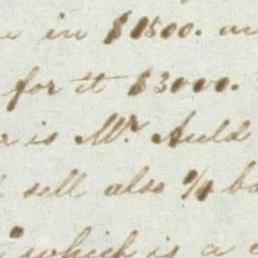 in $1500. an
for it $3000.
r is Mr. Auld
sell also
which is a